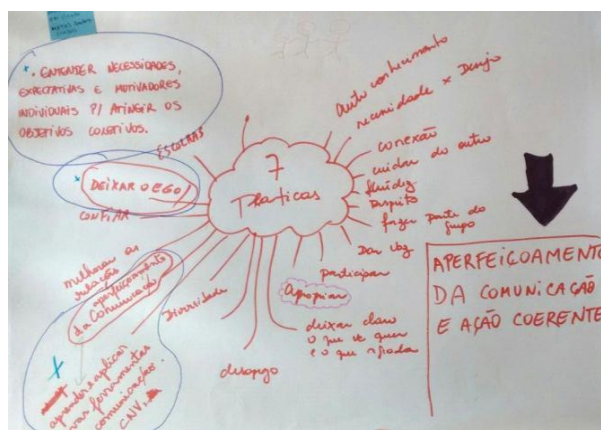 • ENTENDER NECESSIDADES,
EXPECTATIVAS E MOTIVADORES
INDIVIDUAIS P/ ATINGIR OS
OBJETIVOS COLETIVOS.
ESCOLHAS
DEIXAR O EGO
CONFIAR
melhorar as
relações
aperfeiçoamento
da Comunicação
X
aprender e aplicar
ferramentas
comunicação.
CNV.
Diversidade
desapego
7
Práticas
Auto conhecimento
necessidade x Desejo
conexão
cuidar do outro
fluidez
respeito
fazer parte do
grupo
Dar voz
participar
Apropriar
deixar claro
o que se quer
e o que
APERFEIÇOAMENTO
DA COMUNICAÇÃO
E AÇÃO COERENTE